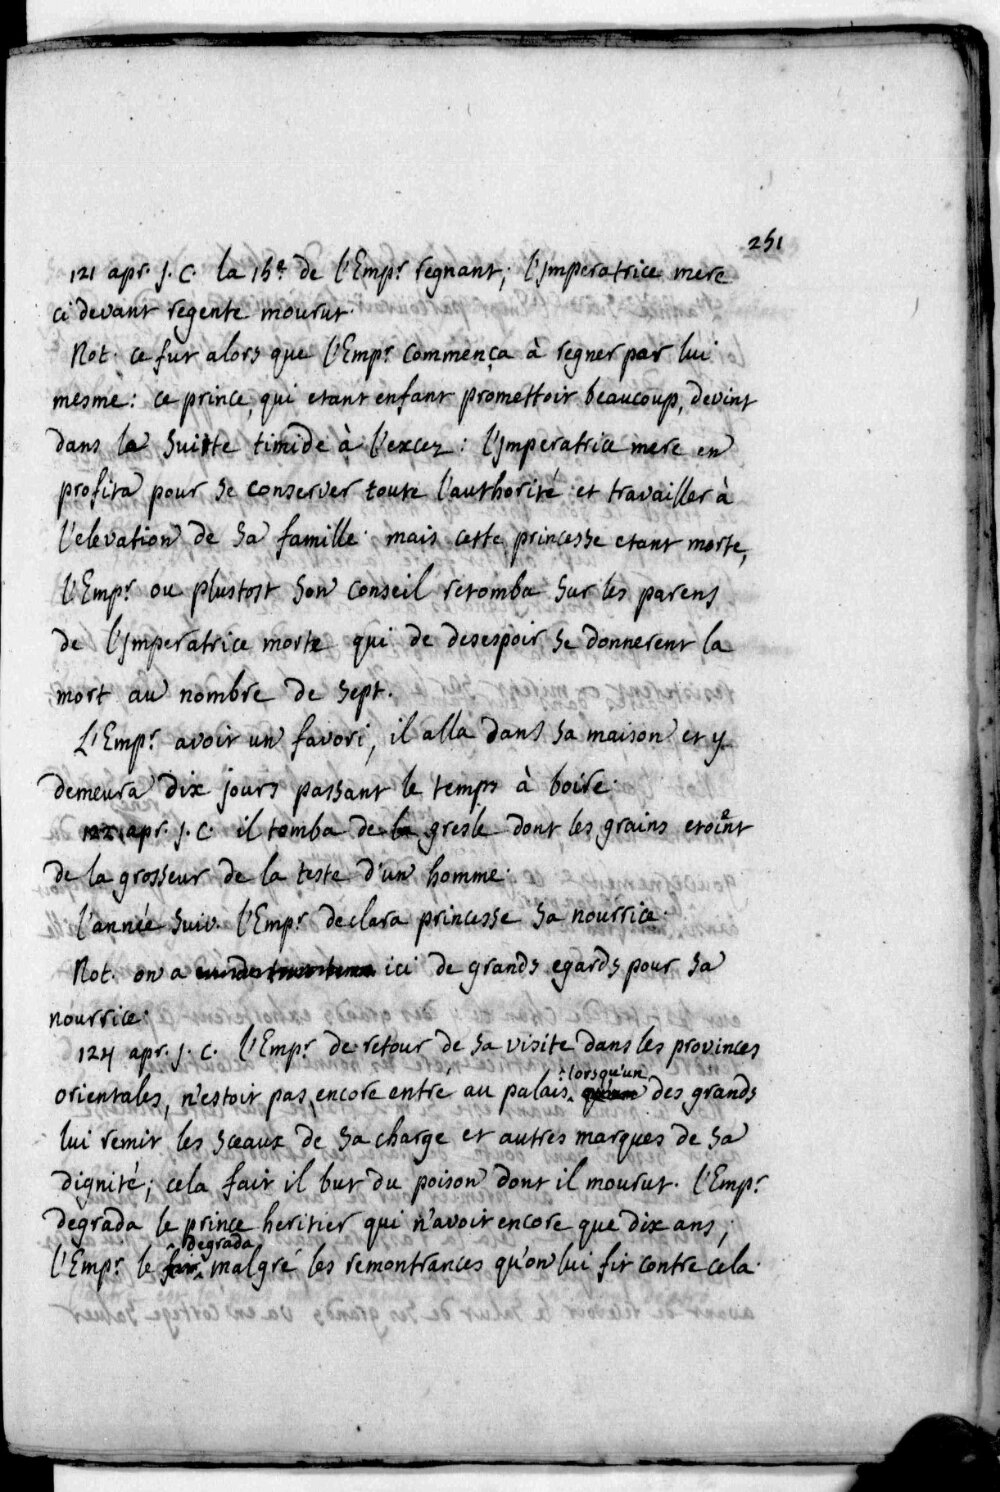 251
121 apr. J. C. la 15e de l'Empr regnant; l'Imperatrice mere
ci devant regente mourut.
Not. ce fut alors que l'Empr commença à regner par lui
mesme: ce prince, qui etant enfant promettoit beaucoup, devint
dans la suitte timide à l'excez: l'Imperatrice mere en
profita pour se conserver toute l'authorité et travailler à
l'elevation de sa famille. mais cette princesse etant morte,
l'Empr ou plustost son conseil retomba sur les parens
de l'Imperatrice morte qui de desespoir se donnerent la
mort au nombre de sept.
L'Empr avoit un favori, il alla dans sa maison et y
demeura dix jours passant le temps à boire.
122 apr. J. C. il tomba de la gresle dont les grains etoient
de la grosseur de la teste d'un homme.
l'année suiv. l'Empr declara princesse sa nourrice.
Not. on a ici de grands egards pour sa
nourrice.
124 apr. J. C. l'Empr de retour de sa visite dans les provinces
orientales, n'estoit pas encore entre au palais: lorsqu'un qu'un des grands
lui remit les sceaux de sa charge et autres marques de sa
dignité; cela fait il but du poison dont il mourut. l'Empr
degrada le prince heritier qui n'avoit encore que dix ans;
l'Empr le fit degrada malgré les remontrances qu'on lui fit contre cela.